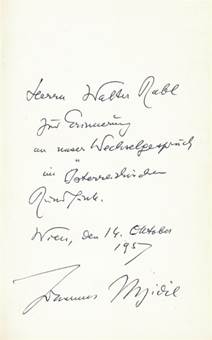 Herrn Walter Rabl
zur Erinnerung
an unser Wechselgespräch
im Österreichischen
Rundfunk.
Wien, den 14. Oktober
1957
Johannes